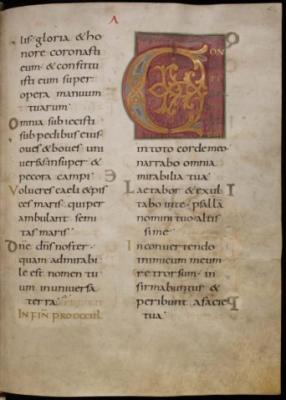 lis· gloria & ho
nore coronasti
eum· & constitu
isti eum super
opera manuum
tuarum
Omnia subiecisti
sub pedibus eius
oues & boues uni
uersas insuper &
pecora campi
Volucres caeli & pis
ces maris· qui per
ambulant semi
tas maris
Dne dns noster·
quam admirabi
le est nomen tu
um in uniuersa
terra
IN FIN
C ON
in toto corde meo
narrabo omnia
mirabilia tua
Laetabor & exul
tabo in te· psallā
nomini tuo altis
sime
In conuertendo
inimicum meum
retrorsum· in
firmabuntur &
peribunt a facie
tua